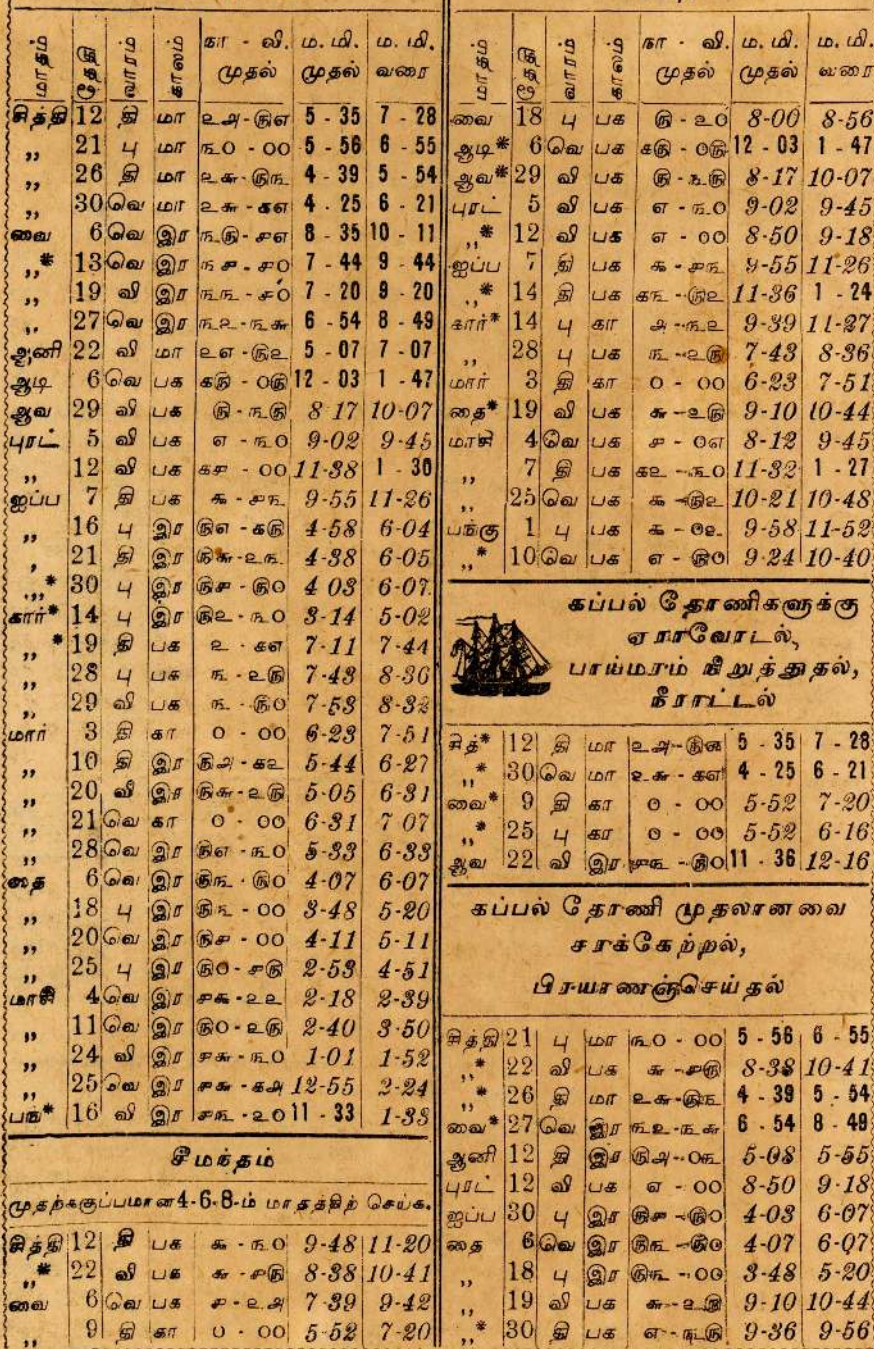 மாதம் தேதி வாரம் காலம் நா - வி. முதல் ம. மி. முதல் ம. மி. வரை
சித்தி 12 தி மா ௨௮-௫௭ 5 - 35 7 - 28
,, 21 பு மா ௩௦ - ௦௦ 5 - 56 6 - 55
,, 26 தி மா ௨௬-௫௩ 4 - 39 5 - 54
,, 30 வெ மா ௨௬ - ௧௭ 4 . 25 6 - 21
வை 6 வெ இர ௩௫ - ௪௭ 8 - 35 10 - 11
,,* 13 வெ இர ௩௪ - ௪௦ 7 - 44 9 - 44
,, 19 வி இர ௩௩ - ௪௦ 7 - 20 9 - 20
,, 27 வெ இர ௩௨ - ௩௬ 6 - 54 8 - 49
ஆனி 22 வி மா ௨௭ - ௫௨ 5 - 07 7 - 07
ஆடி 6 வெ பக ௧௫ - ௦௫ 12 - 03 1 - 47
ஆவ 29 வி பக ௫ - ௩௫ 8 17 10-07
புரட் 5 வி பக ௭ - ௩௦ 9-02 9-45
,, 12 வி பக ௧௪ - ௦௦ 11-38 1 - 30
ஐப்ப 7 தி பக ௯ - ௪௩ 9-55 11-26
,, 16 பு இர ௫௭ - ௧௫ 4-58 6-04
, 21 தி இர ௫௬-௨௩ 4-38 6-05
,,* 30 பு இர ௫௪ - ௫௦ 4 03 6-07
கார்* 14 பு இர ௫௨ - ௩௦ 3-14 5-02
,,* 19 தி பக ௨ - ௧௭ 7-11 7-44
,, 28 பு பக ௩ - ௨௫ 7-43 8-36
,, 29 வி பக ௩ - ௫௦ 7-53 8-32
மார் 3 தி கா ௦ - ௦௦ 6-23 7-51
,, 10 தி இர ௫௮ - ௧௨ 5-44 6-27
,, 20 வி இர ௫௬-௨௫ 5-05 6-31
,, 21 வெ கா ௦ - ௦௦ 6-31 7 07
,, 28 வெ இர ௫௭ - ௩௦ 5-33 6-33
தை 6 வெ இர ௫௩ - ௫௦ 4-07 6-07
,, 18 பு இர ௫௩ - ௦௦ 3-48 5-20
,, 20 வெ இர ௫௪ - ௦௦ 4-11 5-11
,, 25 பு இர ௫௦ - ௪௫ 2-53 4-51
மாசி 4 வெ இர ௪௯ - ௨௨ 2-18 2-39
,, 11 வெ இர ௫௦ - ௨௫ 2-40 3-50
,, 24 வி இர ௪௬ - ௩௦ 1-01 1-52
,, 25 வெ இர ௪௬ - ௧௮ 12-55 2-24
பங்* 16 வி இர ௪௩ - ௨௦ 11 - 33 1-33
சீமந்தம்
முதற்கருப்பமான 4-6-8-ம் மாதத்திற் செய்க.
சித்தி 12 தி பக ௯ - ௩௦ 9-48 11-20
,,* 22 வி பக ௬ - ௪௫ 8-38 10-41
வை 6 வெ பக ௪ - ௨௮ 7-39 9-42
,, 9 தி கா ௦ - ௦௦ 5-52 7-20
மாதம் தேதி வாரம் காலம் நா - வி. முதல் ம. மி. முதல் ம. மி. வரை
வை 18 பு பக ௫ - ௨௦ 8-00 8-56
ஆடி* 6 வெ பக ௧௫ - ௦௫ 12 - 03 1 - 47
ஆவ* 29 வி பக ௫ - ௩௫ 8-17 10-07
புரட் 5 வி பக ௭ - ௩௦ 9-02 9-45
,,* 12 வி பக ௭ - ௦௦ 8-50 9-18
ஐப்ப 7 தி பக ௯ - ௪௩ 9-55 11-26
,,* 14 தி பக ௧௩ - ௫௨ 11-36 1 - 24
கார்* 14 பு கா ௮ - ௩௨ 9-39 11-27
,, 28 பு பக ௩ - ௨௫ 7-43 8-36
மார் 3 தி கா ௦ - ௦௦ 6-23 7-51
தை* 19 வி பக ௬ - ௨௫ 9-10 10-44
மாசி 4 வெ பக ௪ - ௦௭ 8-12 9-45
,, 7 தி பக ௧௨ - ௩௦ 11-32 1 - 27
,, 25 வெ பக ௯ - ௫௨ 10-21 10-48
பங்கு 1 பு பக ௯ - ௦௨ 9-58 11-52
,,* 10 வெ பக ௭ - ௫௦ 9-24 10-40
கப்பல் தோணிகளுக்கு
ஏராவோடல்,
பாய்மரம் நிறுத்துதல்,
நீராட்டல்
சித்* 12 தி மா ௨௮-௫௭ 5 - 35 7 - 28
,,* 30 வெ மா ௨௬ - ௧௭ 4 - 25 6 - 21
வை* 9 தி கா ௦ - ௦௦ 5-52 7-20
,,* 25 பு கா ௦ - ௦௦ 5-52 6-16
ஆவ 22 வி இர ௪௩ - ௫௦ 11 - 36 12-16
கப்பல் தோணி முதலானவை
சரக்கேற்றல்,
பிரயாணஞ்செய்தல்
சித்தி 21 பு மா ௩௦ - ௦௦ 5 - 56 6 - 55
,,* 22 வி பக ௬ - ௪௫ 8-38 10-41
,,* 26 தி மா ௨௬-௫௩ 4 - 39 5 - 54
வை* 27 வெ இர ௩௨-௩௬ 6 - 54 8 - 49
ஆனி 12 தி இர ௫௮ - ௦௯ 5-08 5-55
புரட் 12 வி பக ௭ - ௦௦ 8-50 9-18
ஐப்ப 30 பு இர ௫௪ - ௫௦ 4-03 6-07
தை 6 வெ இர ௫௩ - ௫௦ 4-07 6-07
,, 18 பு இர ௫௩ - ௦௦ 3-48 5-20
,, 19 வி பக ௬ - ௨௫ 9-10 10-44
,,* 30 தி பக ௭ - ௩௫ 9-36 9-56